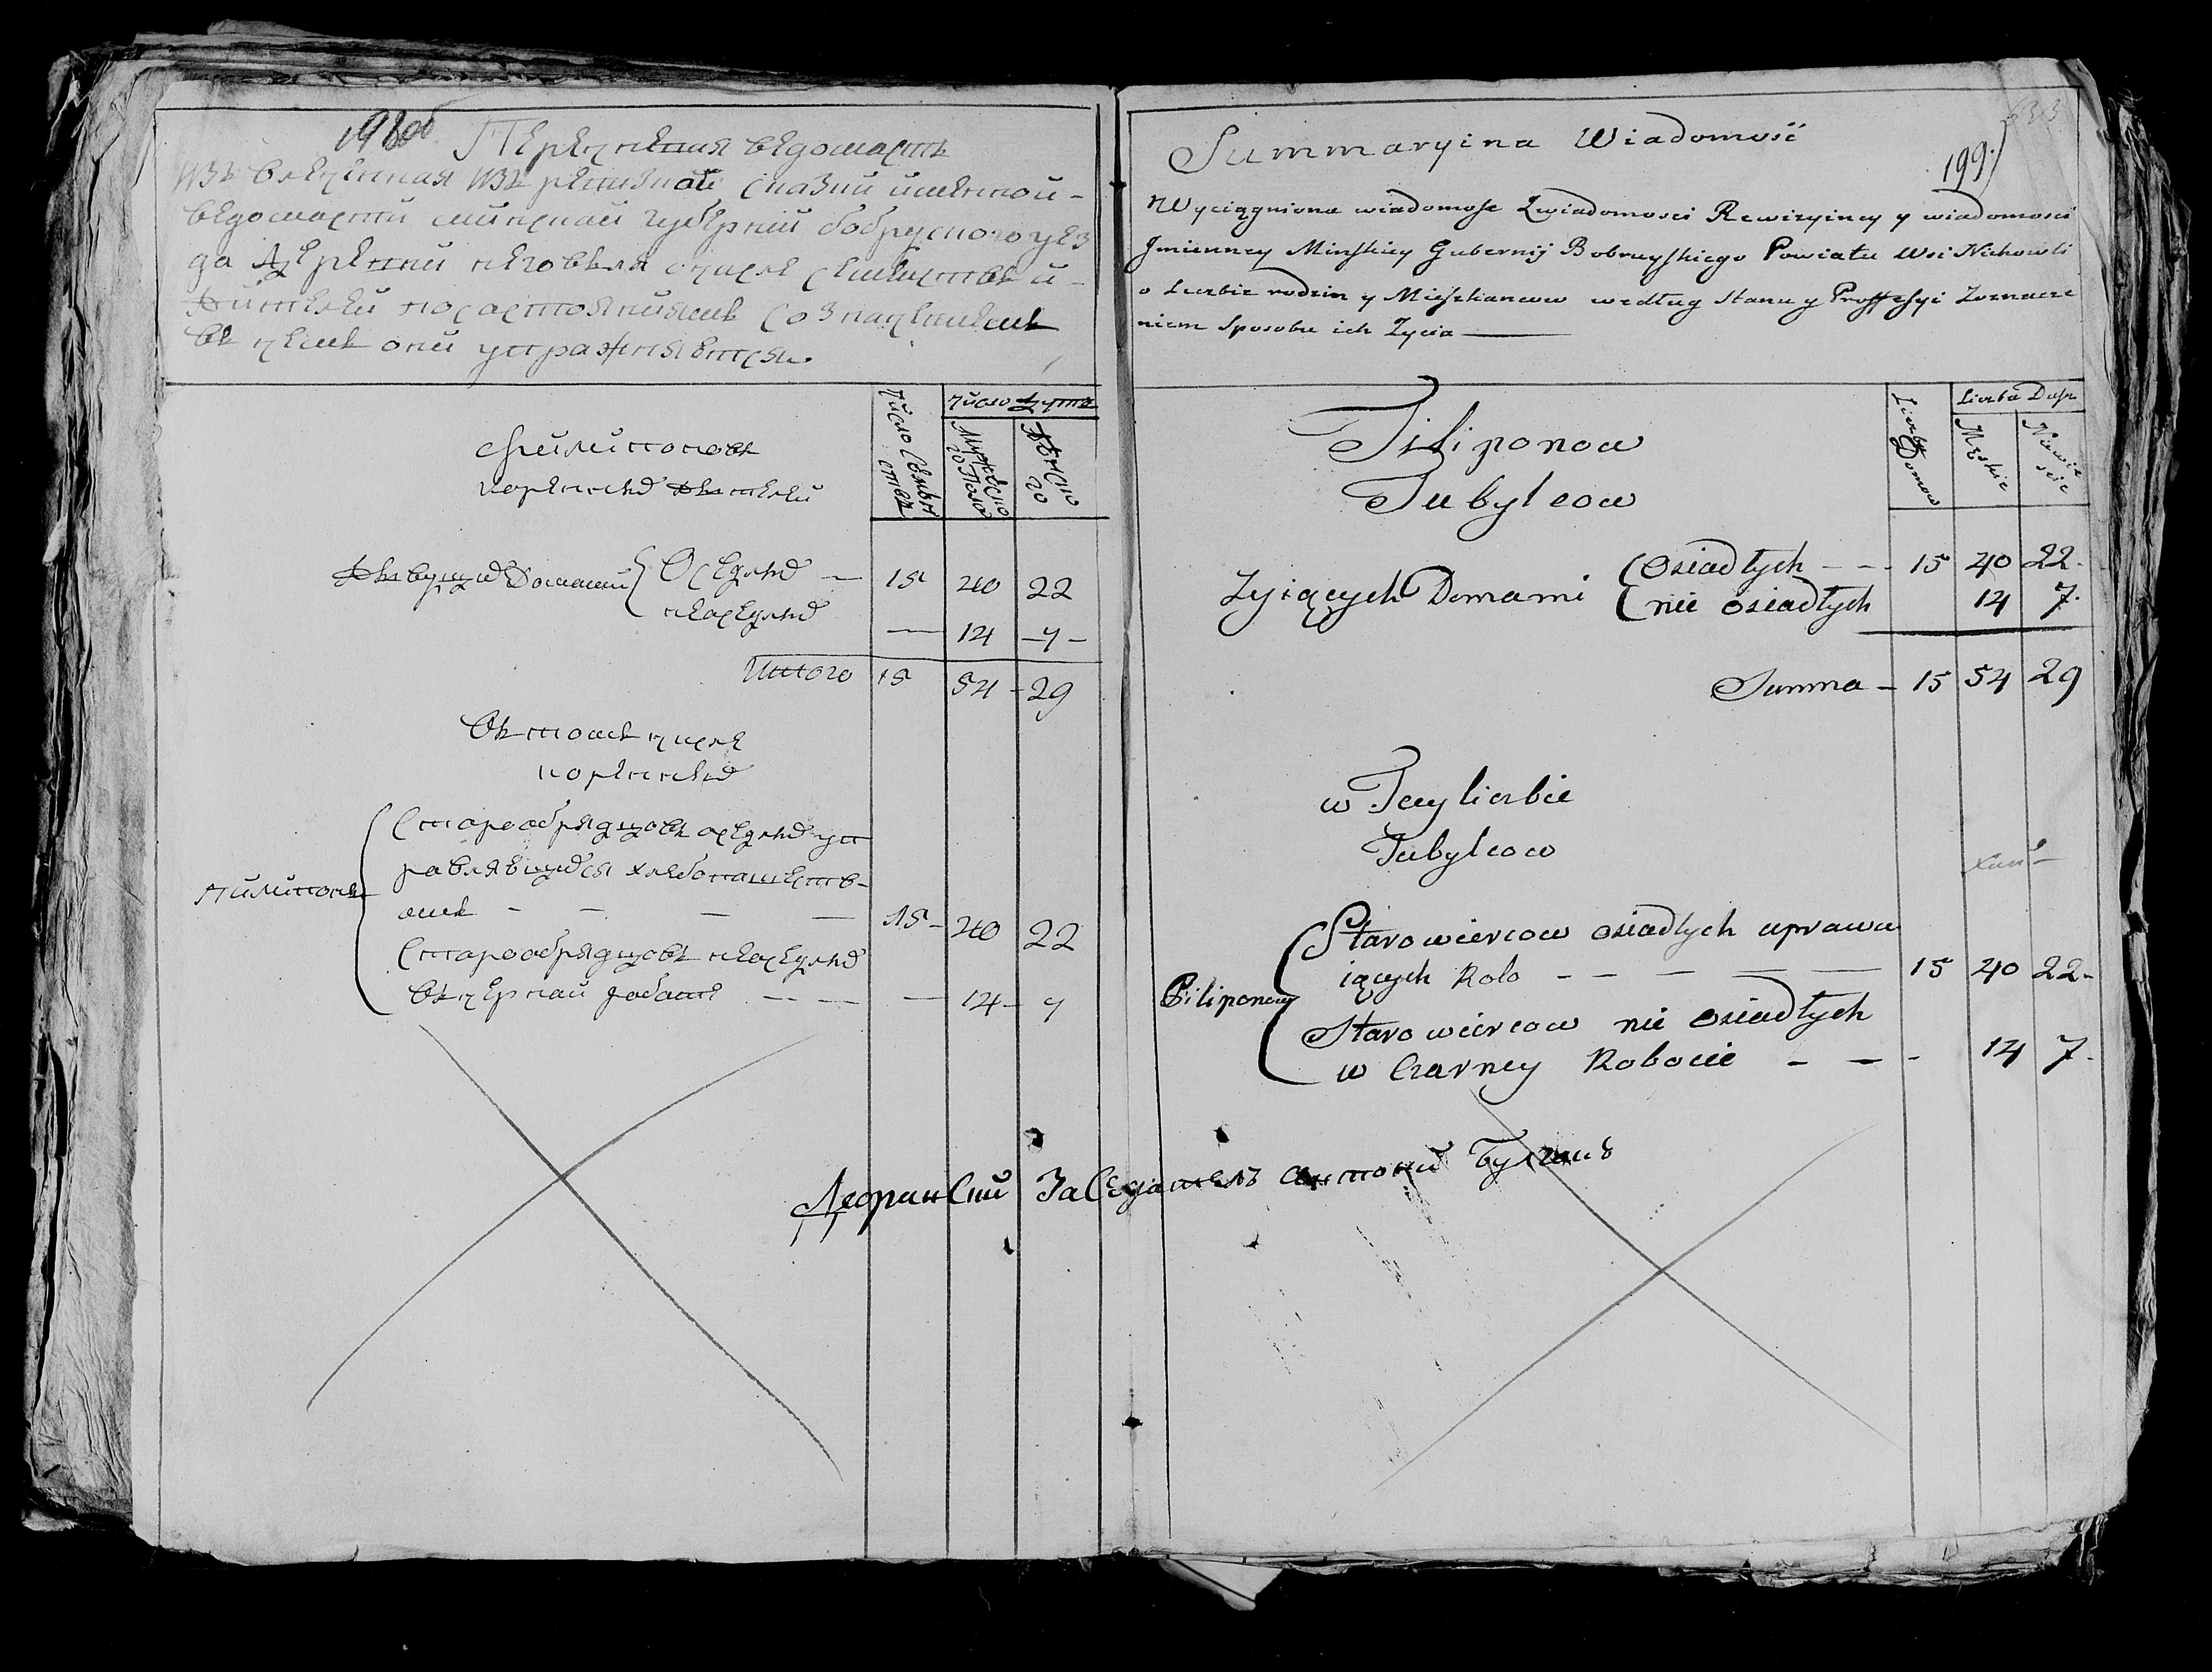 198об
Перечневая ведомасть
извлеченная изъ ревизкай сказки именной
ведомасти минскай губернии бобруского уез
да деревни неговля о числе семействъ и
жителей по састояниямъ со значениемъ
въ чемъ они упражняются
Филипоновъ
коренныхъ жителей
Число Семействъ
число душъ
Мужеско
го Пола
Женско
го
живущихъ Домами Оседлыхъ — 15 40 22
неоседлыхъ — 14 — 7 —
Итого 15 54 - 29
Въ томъ числе
коренныхъ
Пилипонъ
Стараобрядцовъ оседлыхъ уп
равляющихся хлебопашеств-
омъ — — — — 15 - 40 22
Стараобрядцовъ неоседлыхъ
въ чернай работе — — — 14 - 7
633
199.
Summaryina Wiadomość
Wyciągniona wiadomość z wiadomosci Rewizyiney y wiadomosci
Jmienney Minskiey Gubernij Bobruyskiego Powiatu Wsi Niehowli
o Liczbie rodzin y Mieszkancow według Stanu y Proffesyi Zoznacze
niem Sposobu ich Zycia
Filiponow
Tubylcow
Liczba Domow
Liczba Dusz
Męskie
Niewie
ście
Zyiących Domami osiadłych - - - 15 40 22.
nie osiadłych 14 7.
Summa - 15 54 29
w Tey liczbie
Tubylcow
Filiponow
Starowiercow osiadłych uprawu
iących Rolo - - — — — 15 40 22 -
Starowiercow nie osiadłych
w Czarney Robocie - — - 14 7 -
Дворянский Заседатель антоний Булгакъ